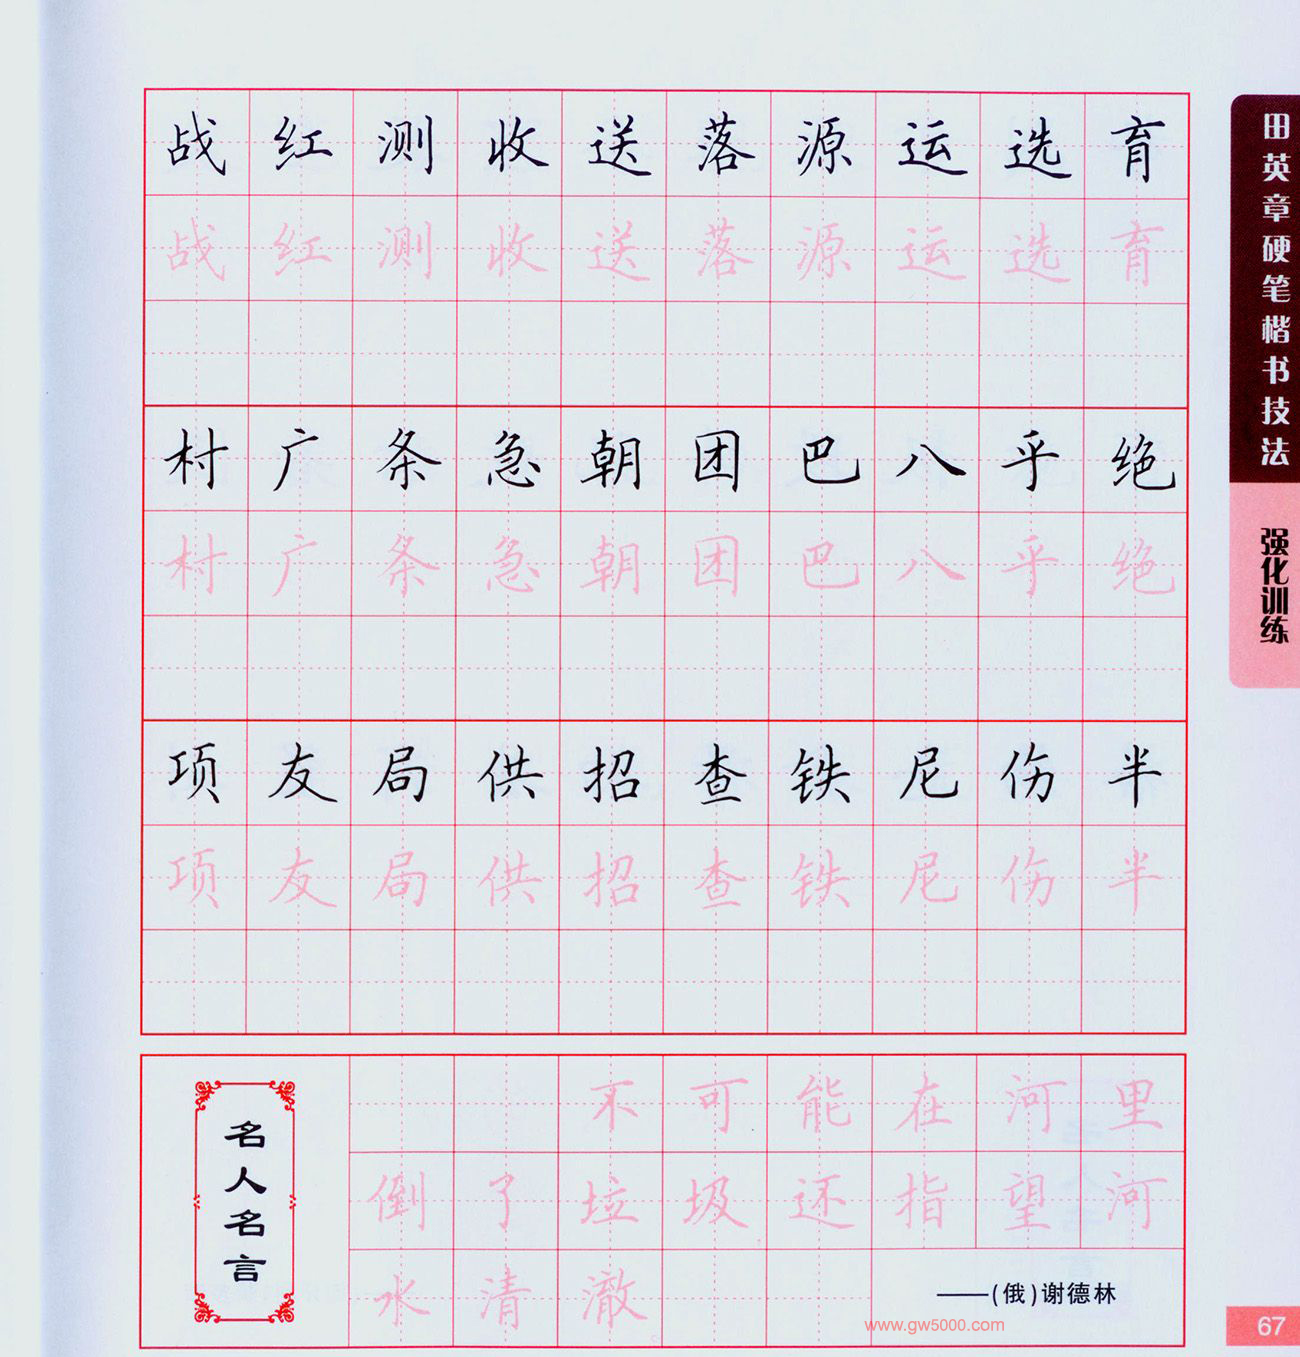 战红测收送落源运选育
战红测收送落源运选育
村广条急朝团巴八乎绝
村广条急朝团巴八乎绝
项友局供招查铁尼伤半
项友局供招查铁尼伤半
名人名言
不可能在河里
倒了垃圾还指望河
水清澈
——(俄)谢德林
www.gw5000.com
田英章硬笔楷书技法
强化训练
67